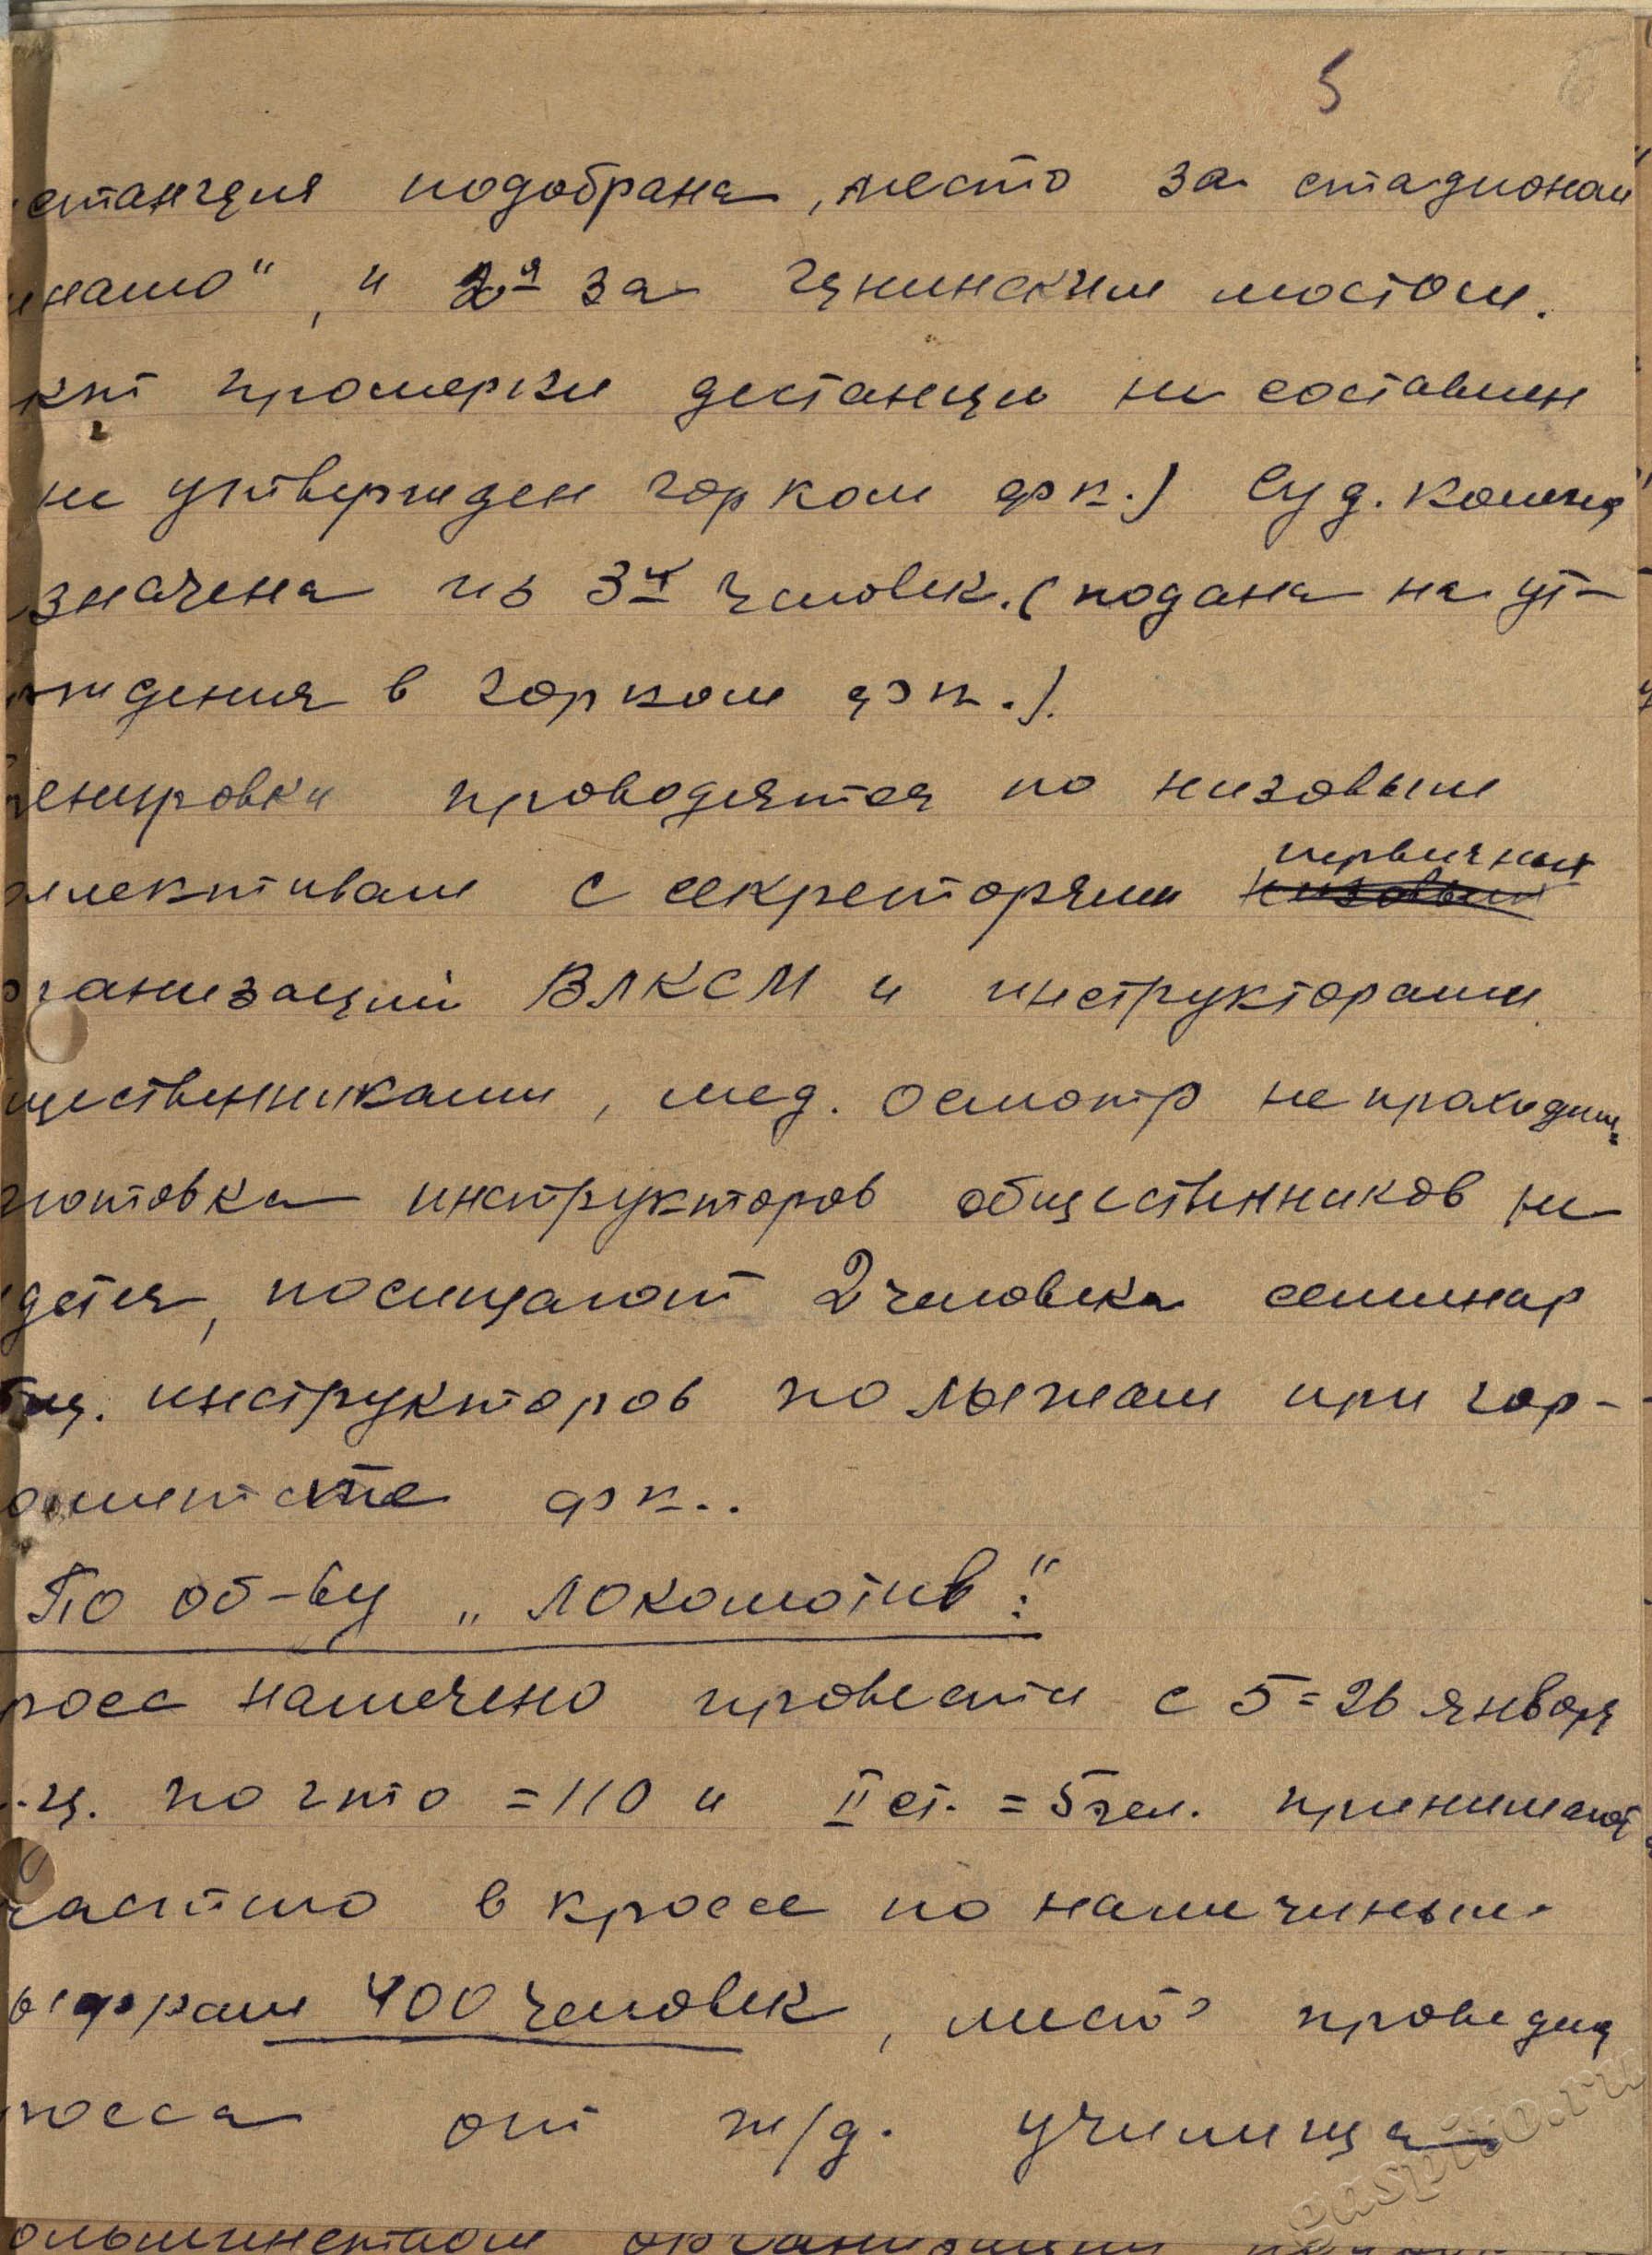 5
станция подобрана, место за стадионом
инамо", и 2я за цнинским мостом.
кт промерки дестанции не составлен
не утвержден горком фк.) Суд. коллег
значена из 3х человек. (подана на ут-
ждения в горком фк.).
ренировки проводятся по низовым
оллективам с секреторями первичных
рганизаций ВЛКСМ и инструкторами
щественниками, мед. осмотр не проходим.
готовка инструкторов общественников не
дется, посещают 2 человека семинар
бщ. инструкторов по лыжам при гор-
омитете фк..
По об-ву „Локомотив":
росс намечено провести с 5=26 января
.ц. по гто =110 и II ст. = 5 чел. принимают
частию в кроссе по намеченым
ыфрам 400 человек, место проведен
росса от ж/д. училища
ольшинством организации
gaspito.ru